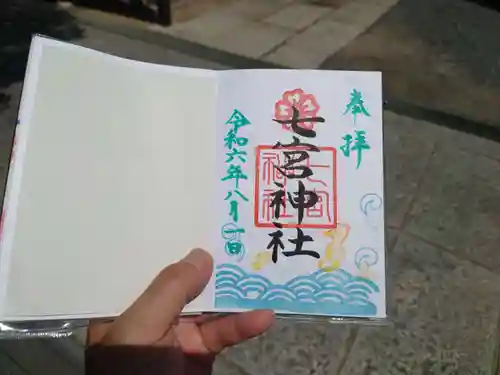 奉拝
七宮神社
七宮神社
令和六年八月一日